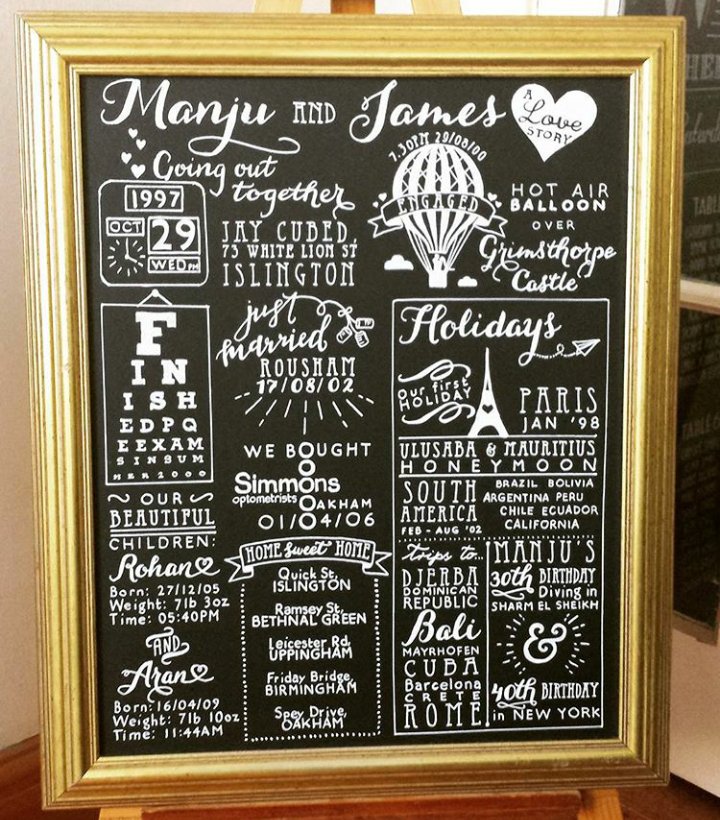 Manju AND James
A Love STORY
Going out together
1997
OCT 29
WED PM
JAY CUBED
73 WHITE LION ST
ISLINGTON
7.30PM 29/08/00
ENGAGED
HOT AIR
BALLOON
OVER
Grimsthorpe
Castle
F
IN
ISH
EDPQ
EEXAM
SINSUM
MER2000
just
married
ROUSHAM
17/08/02
WE BOUGHT
Simmons
optometrists
OAKHAM
01/04/06
Holidays
Our first
HOLIDAY
PARIS
JAN '98
ULUSABA & MAURITIUS
HONEYMOON
SOUTH
AMERICA
FEB - AUG '02
BRAZIL BOLIVIA
ARGENTINA PERU
CHILE ECUADOR
CALIFORNIA
trips to...
DJERBA
DOMINICAN
REPUBLIC
Bali
MAYRHOFEN
CUBA
Barcelona
CRETE
ROME
MANJU'S
30th BIRTHDAY
Diving in
SHARM EL SHEIKH
&
40th BIRTHDAY
in NEW YORK
OUR
BEAUTIFUL
CHILDREN:
Rohan
Born: 27/12/05
Weight: 7lb 3oz
Time: 05:40PM
AND
Aran
Born: 16/04/09
Weight: 7lb 10oz
Time: 11:44AM
HOME Sweet HOME
Quick St,
ISLINGTON
Ramsey St,
BETHNAL GREEN
Leicester Rd,
UPPINGHAM
Friday Bridge,
BIRMINGHAM
Spey Drive,
OAKHAM